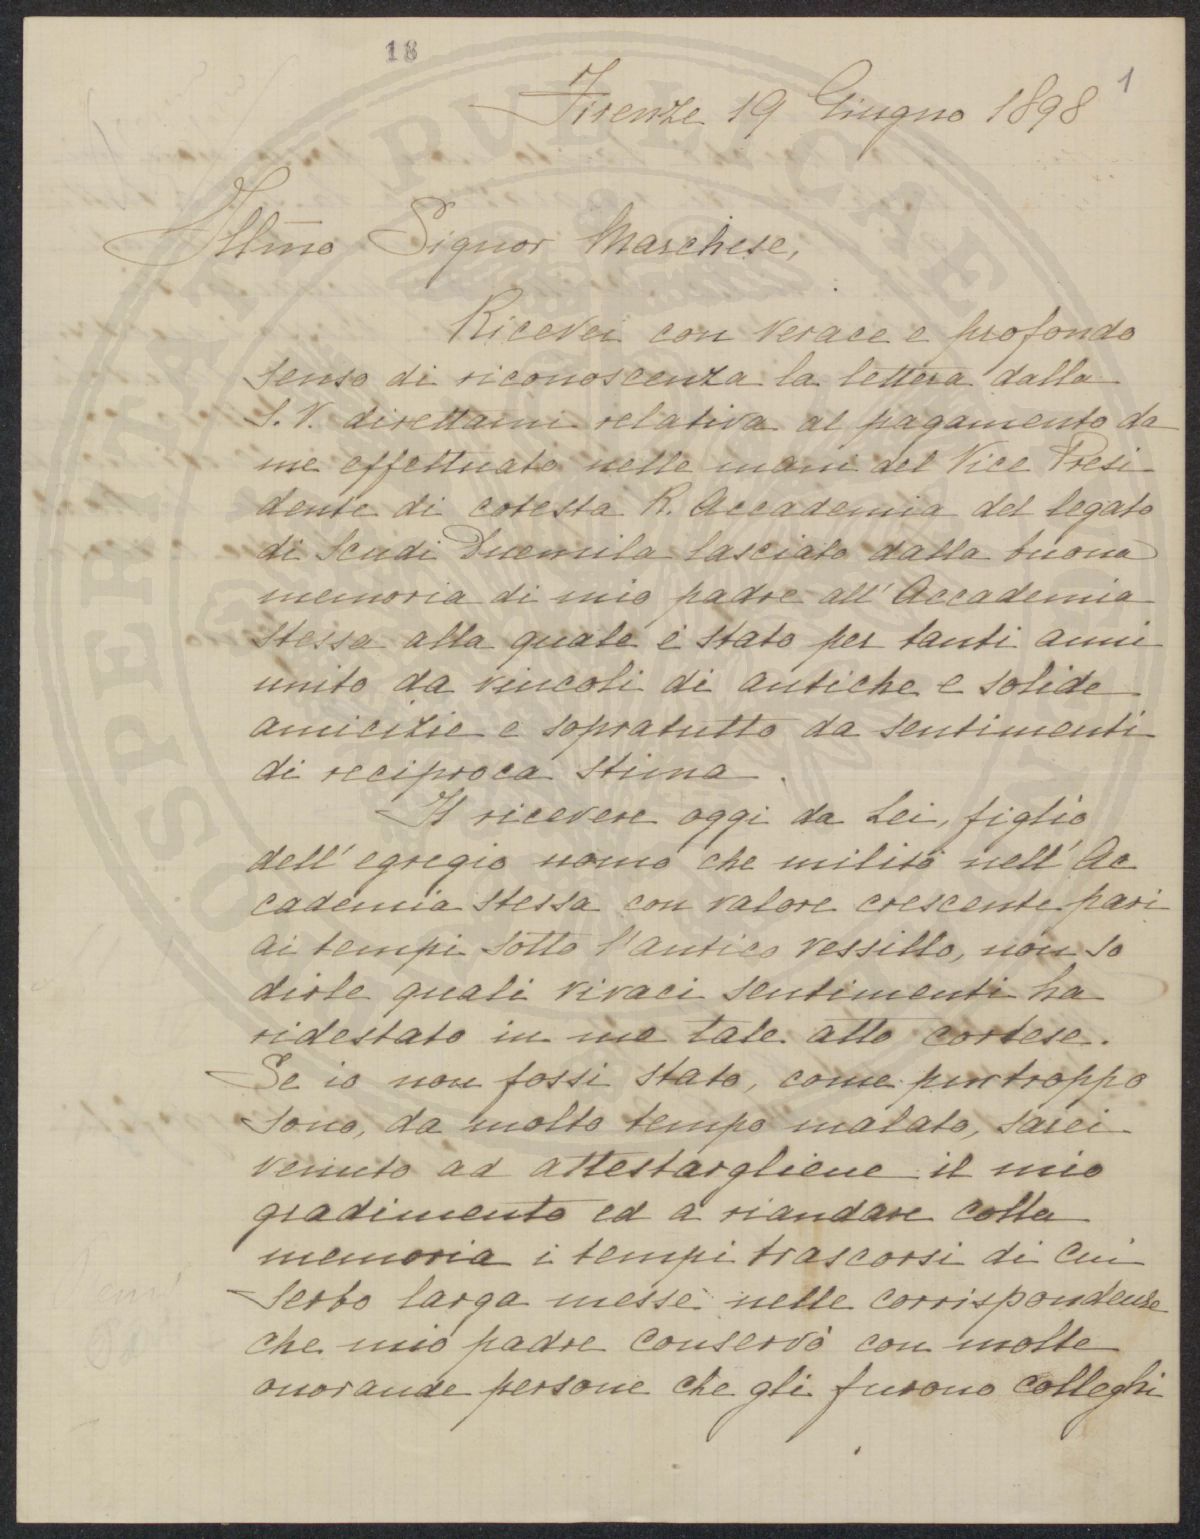 18
1
Firenze 19 Giugno 1898
Illmo Signor Marchese,
Ricevei con verace e profondo
senso di riconoscenza la lettera dalla
S. V. direttami relativa al pagamento da
me effettuato nelle mani del Vice Presi
dente di cotesta R. Accademia del legato
di Scudi Duemila lasciato dalla buona
memoria di mio padre all'Accademia
stessa alla quale è stato per tanti anni
unito da vincoli di antiche e solide
amicizie e sopratutto da sentimenti
di reciproca stima.
Il ricevere oggi da Lei, figlio
dell'egregio uomo che militò nell'Ac
cademia stessa con valore crescente pari
ai tempi sotto l'antico vessillo, non so
dirle quali vivaci sentimenti ha
ridestato in me tale atto cortese.
Se io non fossi stato, come purtroppo
sono, da molto tempo malato, sarei
venuto ad attestargliene il mio
gradimento ed a riandare colla
memoria i tempi trascorsi di cui
serbo larga messe nelle corrispondenze
che mio padre conservò con molte
onorande persone che gli furono colleghi